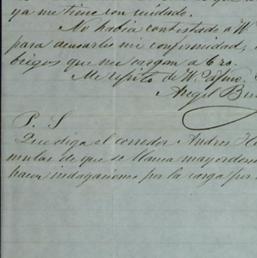 ya me tiene con cuidado.
No habia contestado a W
para acusarles me conformidad,
brigos que me cargan a 6 rs.
Me repito de W. afmo.
Angel
P. S
Que diga el corredor Andres
mulas de que se llama mayordomo
hacer indagaciones por la carga por